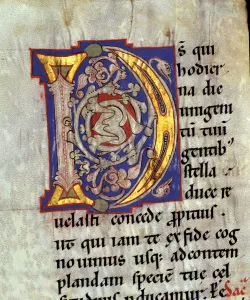 Ds̄ qui
hodier
na die
unigeni
tū tuū
gentib;
stella
duce re
uelasti concede ꝓpitius.
ut qui iam te ex fide cog
nouimus usq; ad contem
plandam speciē tue cel
situdinis ꝑducamur.